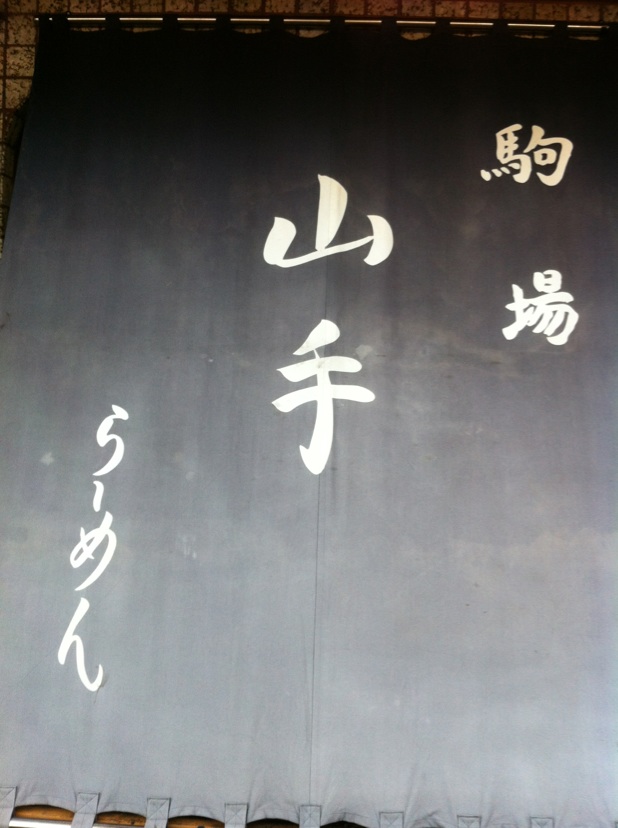 駒場
山手
らーめん